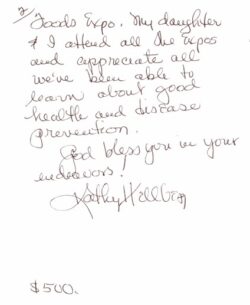 2/
Foods Expo. My daughter
& I attend all the expos
and appreciate all
we've been able to
learn about good
health and disease
prevention.
God bless you in your
endeavors.
Kathy
$500.